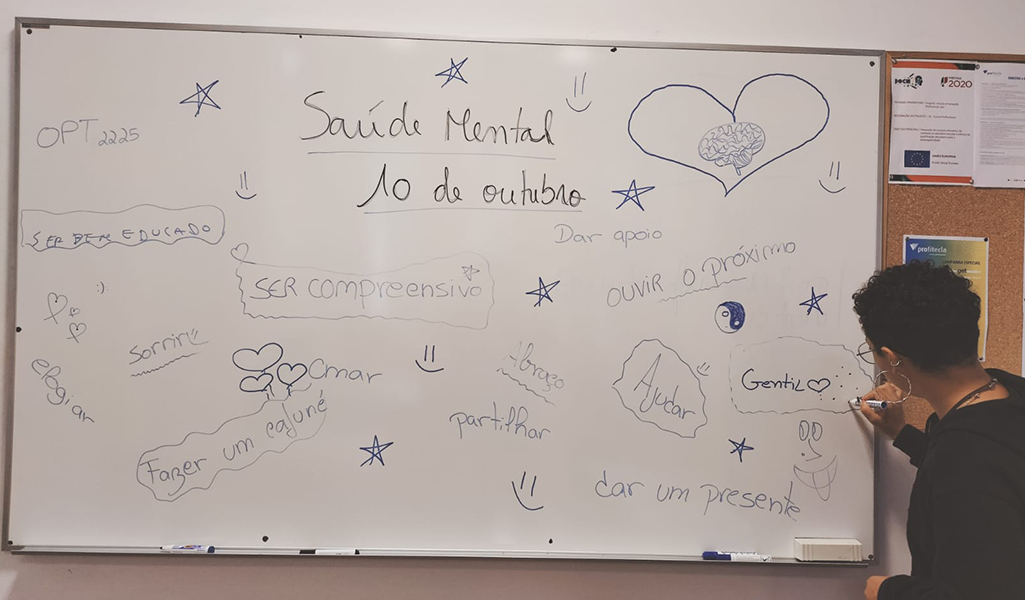 Saúde Mental
10 de outubro
OPT 2225
SER BEM EDUCADO
Dar apoio
SER compreensivo
OUVIR o próximo
:)
Sorrir
elogiar
Amar
Abraço
Ajudar
Gentil
Fazer um cafuné
partilhar
dar um presente
POCH
2020
UNIÃO EUROPEIA
profitecla
profitecla